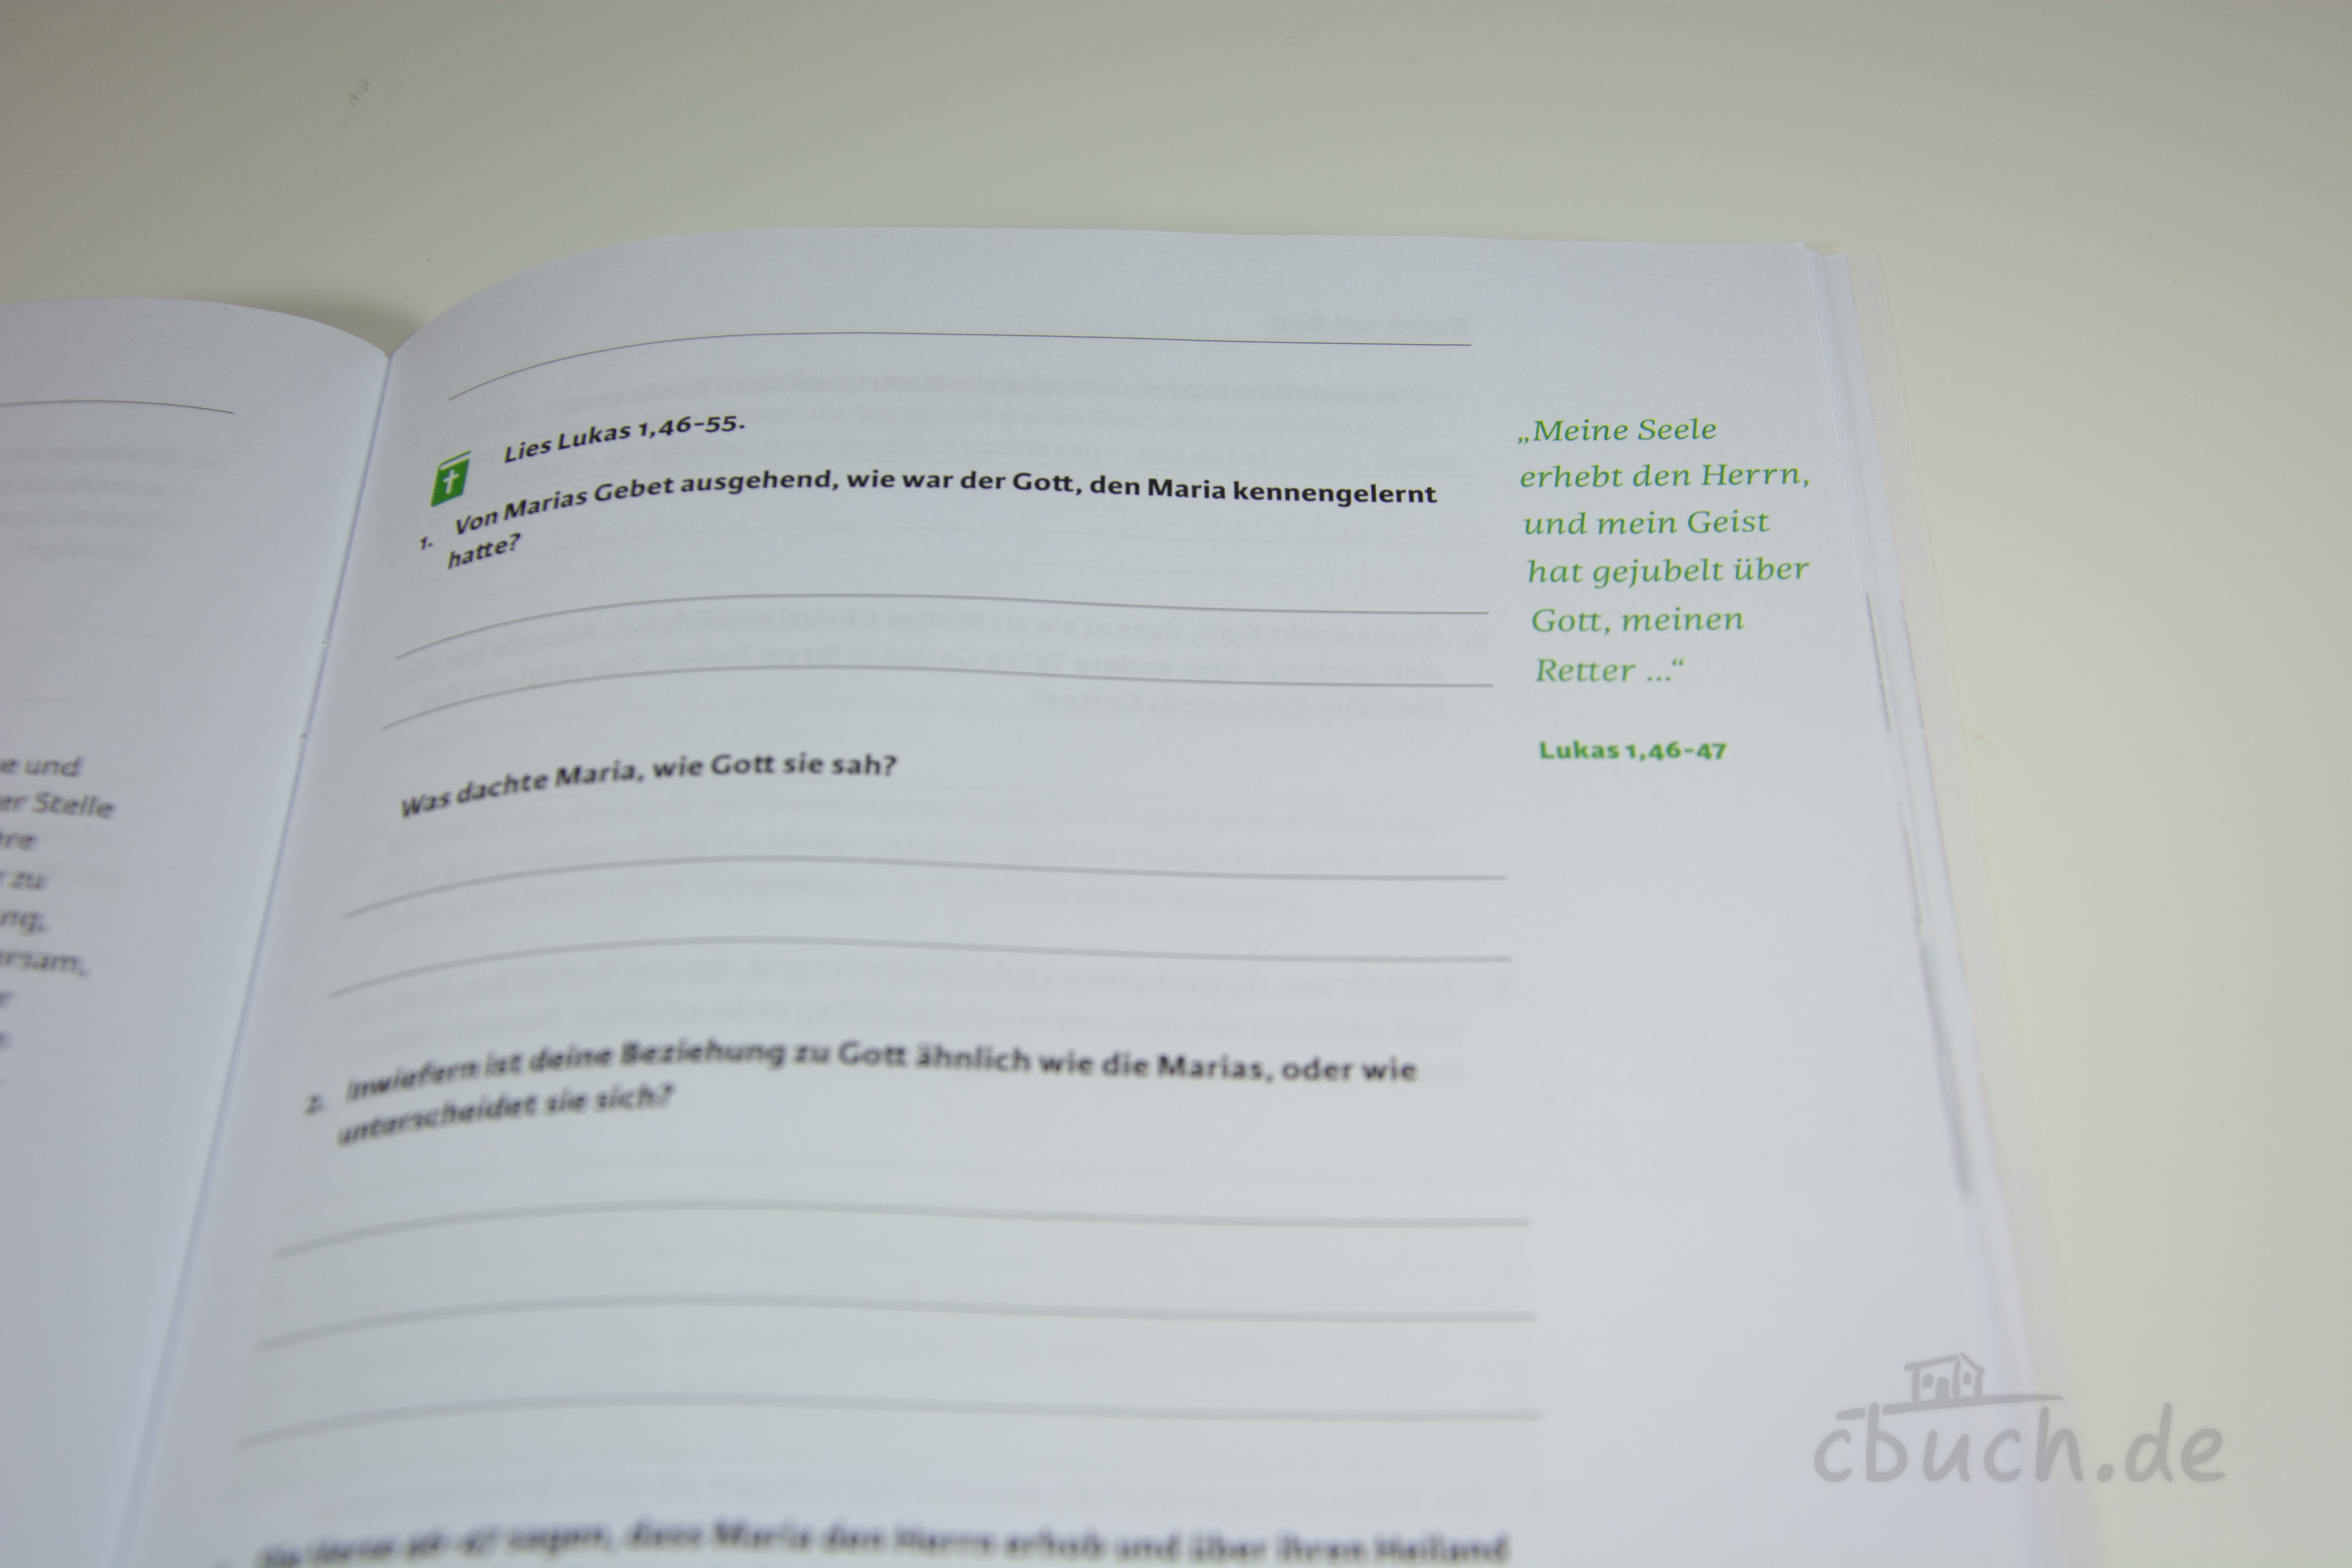 e und
er Stelle
zu
ng,
rsam,
Lies Lukas 1,46–55.
1. Von Marias Gebet ausgehend, wie war der Gott, den Maria kennengelernt
hatte?
Was dachte Maria, wie Gott sie sah?
2. Inwiefern ist deine Beziehung zu Gott ähnlich wie die Marias, oder wie
unterscheidet sie sich?
sagen, dass Maria den Herrn erhob und über ihren Heiland
„Meine Seele
erhebt den Herrn,
und mein Geist
hat gejubelt über
Gott, meinen
Retter ...“
Lukas 1,46–47
cbuch.de